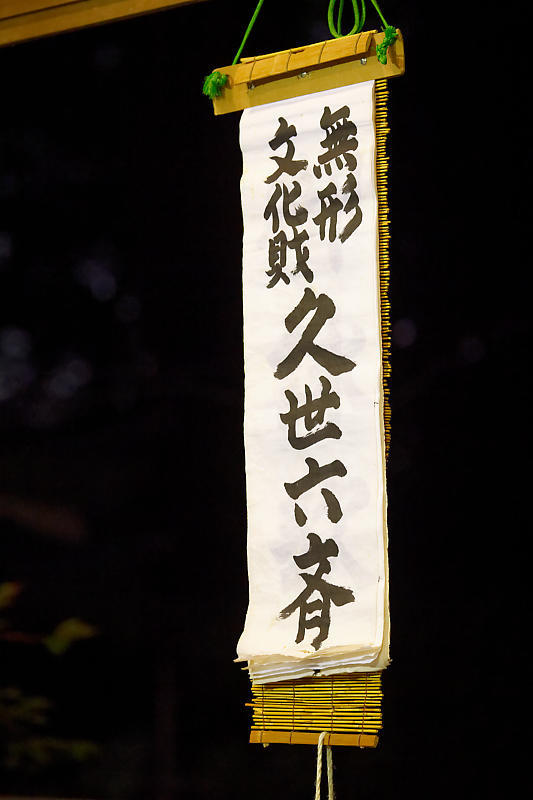 無形
文化財
久世六斉